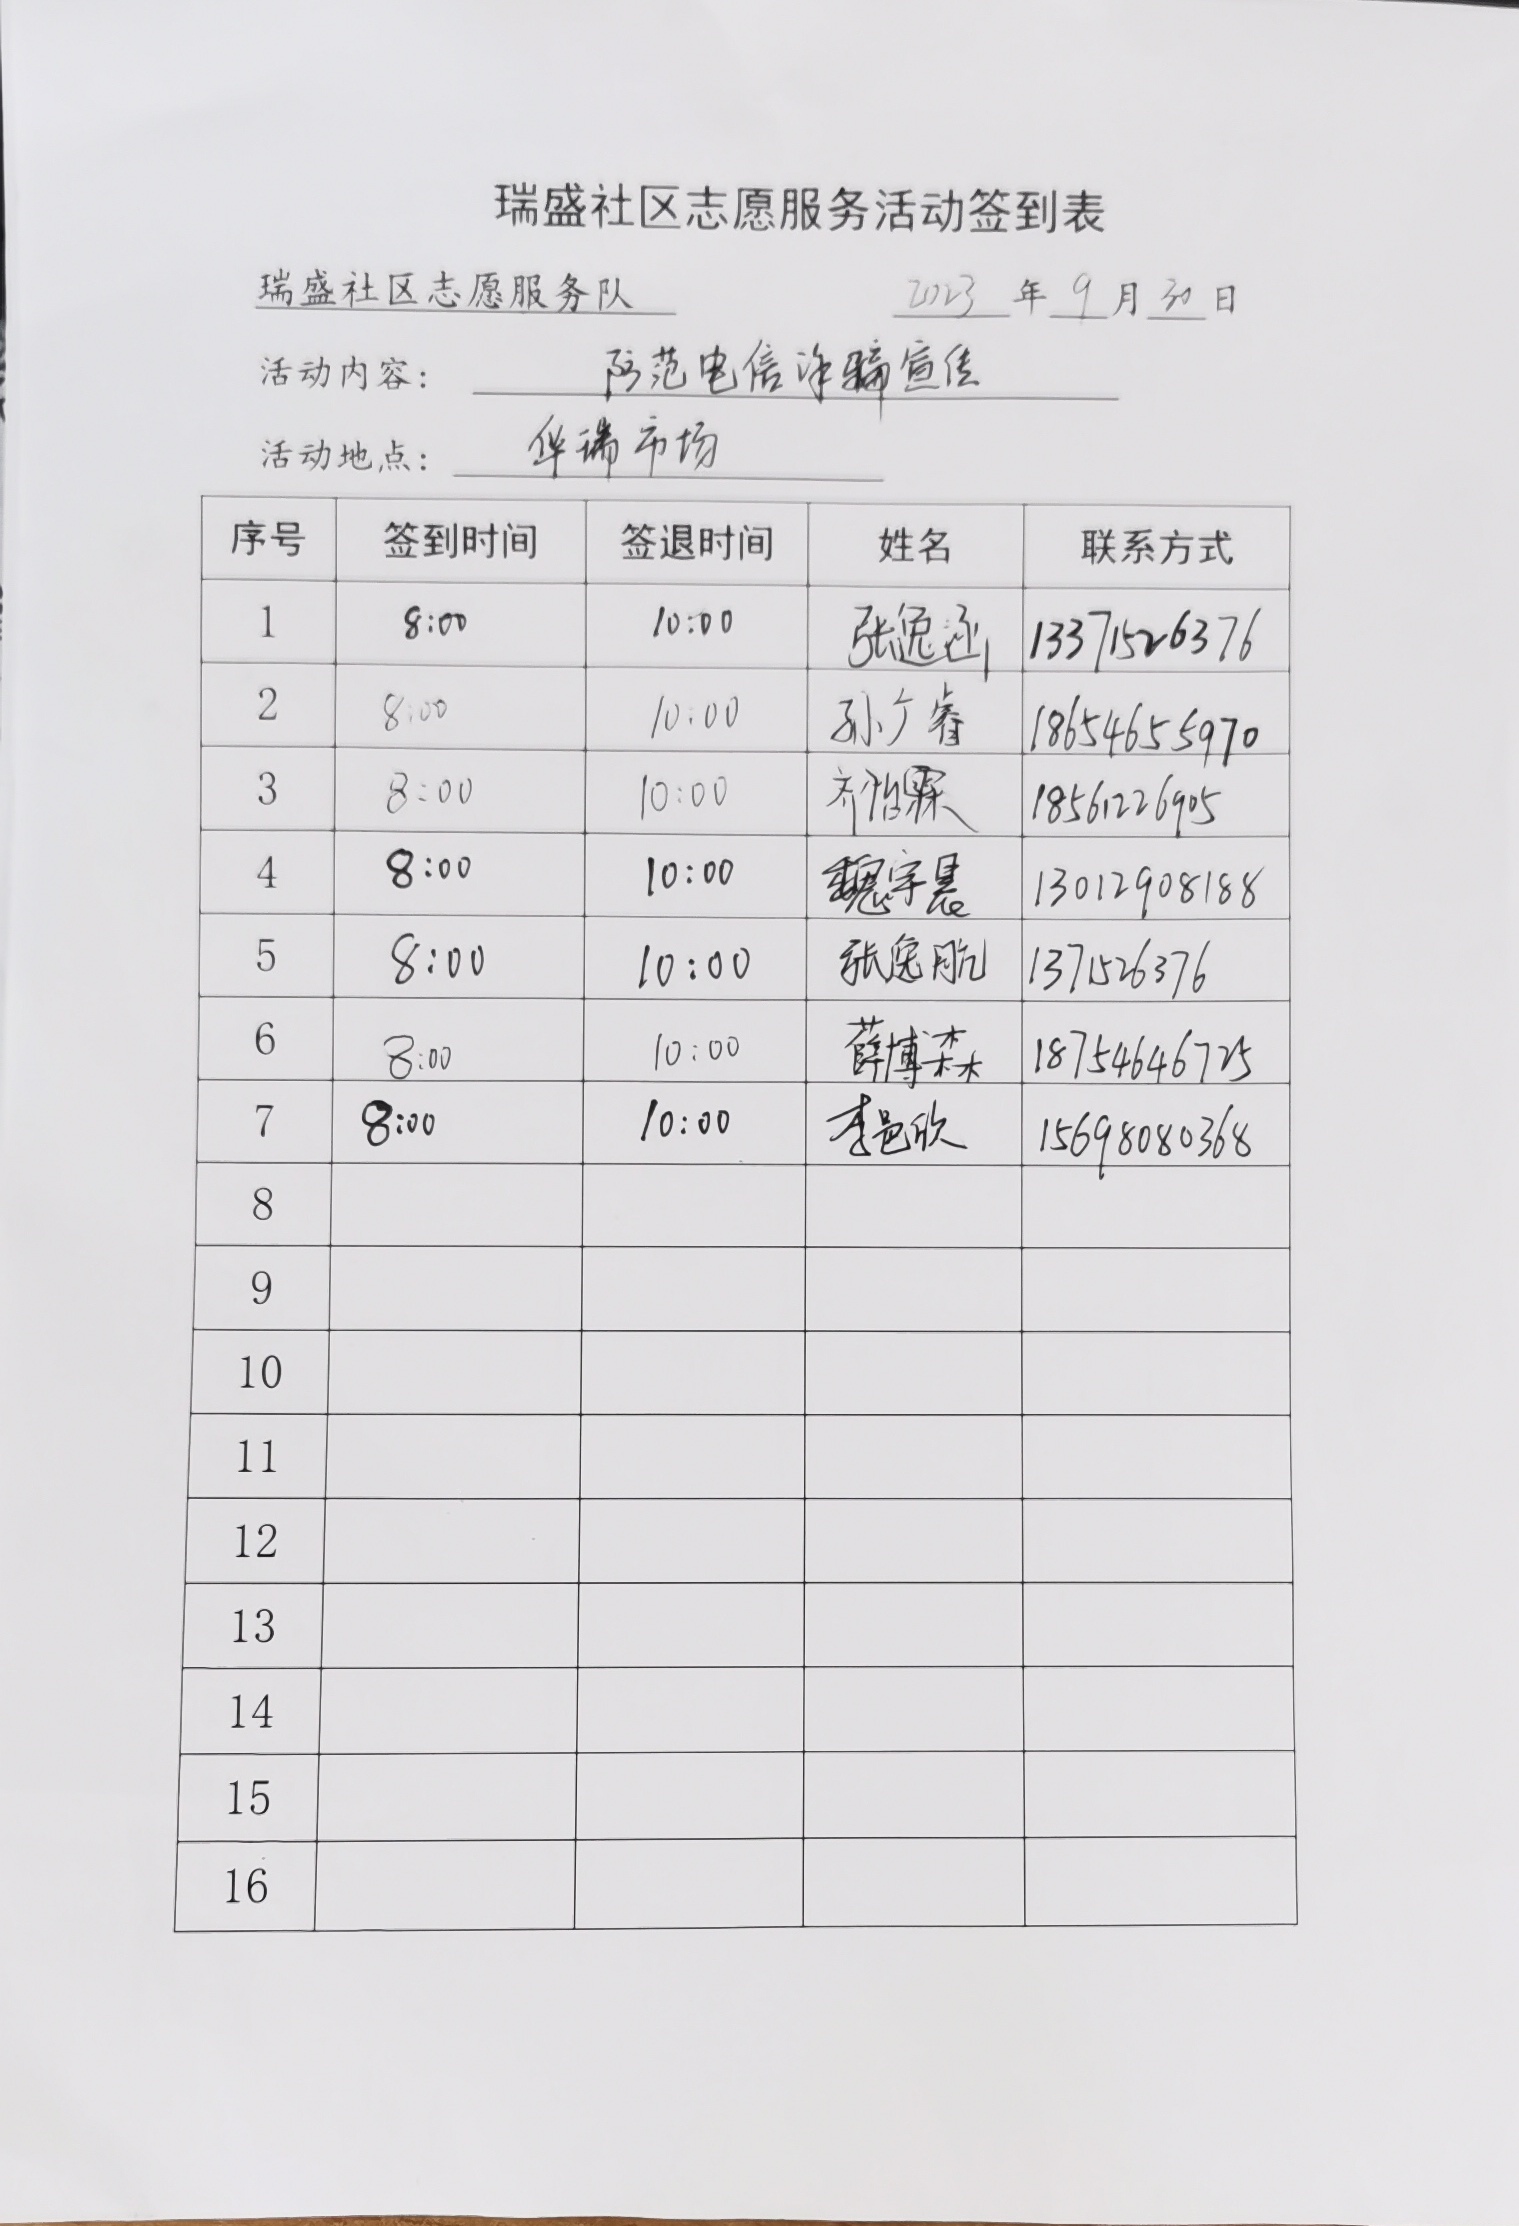 瑞盛社区志愿服务活动签到表
瑞盛社区志愿服务队 2023 年 9 月 30 日
活动内容： 防范电信诈骗宣传
活动地点： 华瑞市场
序号 签到时间 签退时间 姓名 联系方式
1 8:00 10:00 张逸涵 13371526376
2 8:00 10:00 孙广睿 18654655970
3 8:00 10:00 齐怡霖 18561226905
4 8:00 10:00 魏宇晨 13012908188
5 8:00 10:00 张逸航 1371526376
6 8:00 10:00 薛博森 18754646725
7 8:00 10:00 李邑欣 15698080368
8
9
10
11
12
13
14
15
16